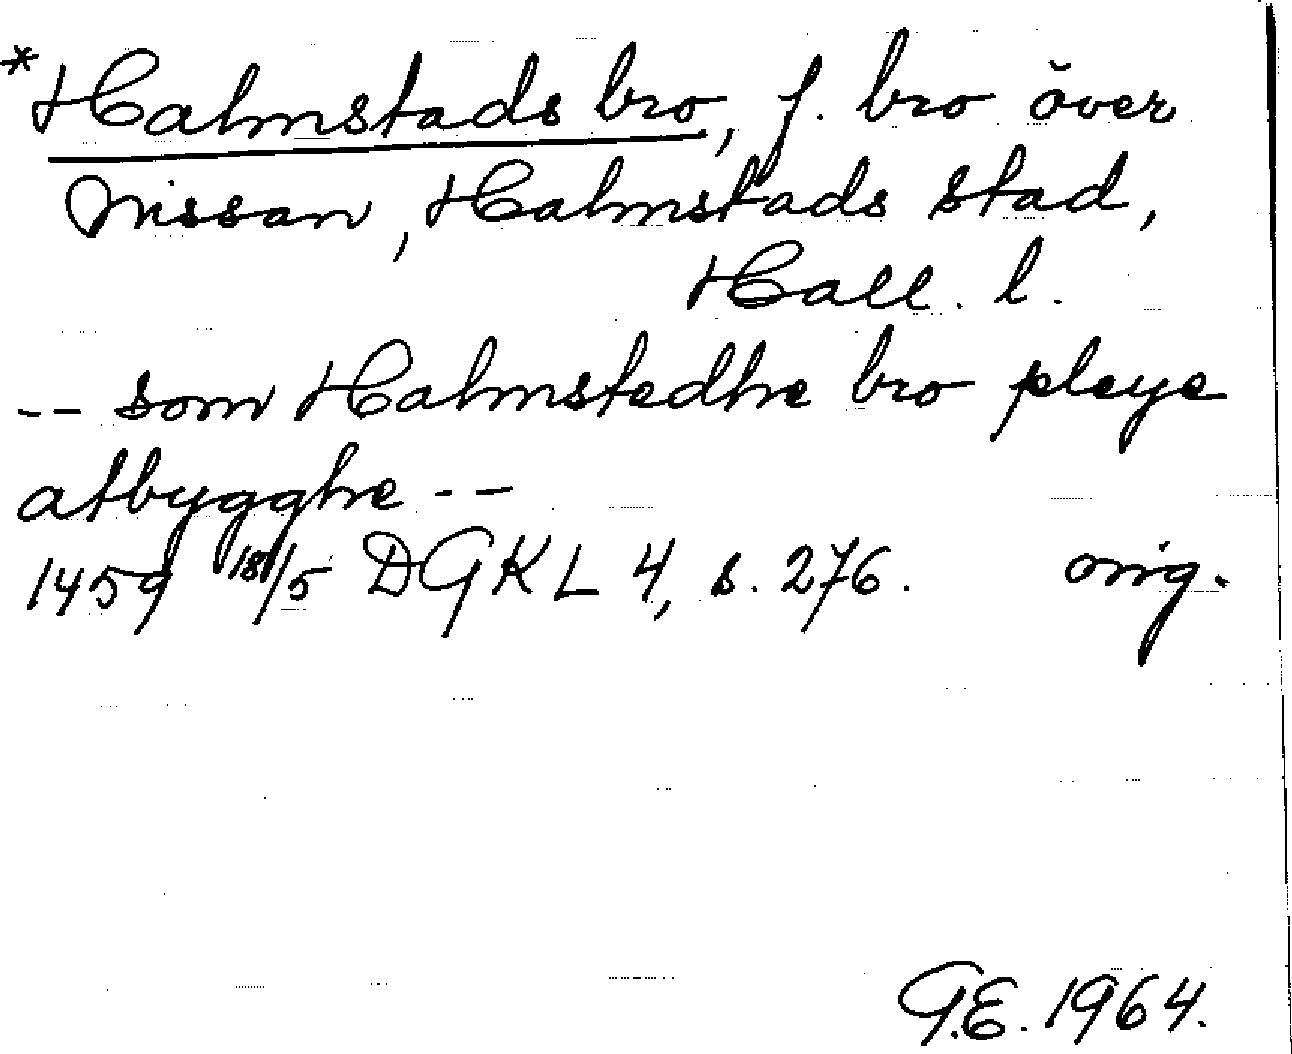 *Halmstads bro, f. bro över
Nissan, Halmstads stad,
Hall. l.
-- som Halmstedhe bro pleye
atbygghe --
1459 18/5 DGKL 4, s. 276. orig.
G.E. 1964.